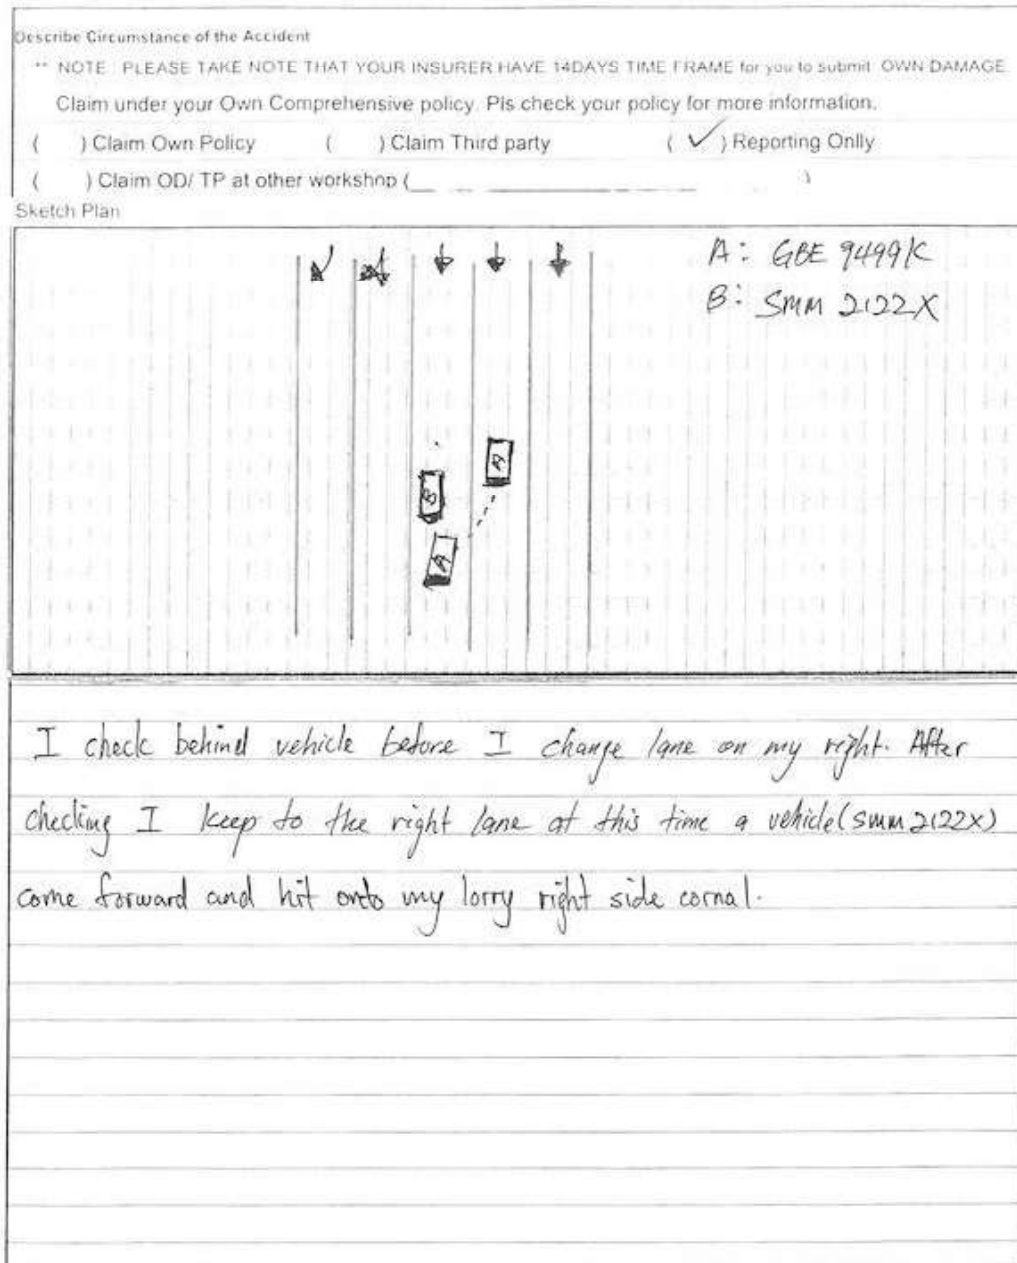 Describe Circumstance of the Accident
** NOTE : PLEASE TAKE NOTE THAT YOUR INSURER HAVE 14DAYS TIME FRAME for you to submit OWN DAMAGE
Claim under your Own Comprehensive policy. Pls check your policy for more information.
( ) Claim Own Policy ( ) Claim Third party ( ✓ ) Reporting Onlly
( ) Claim OD/ TP at other workshop (                    )
Sketch Plan
A: GBE 9499K
B: SMM 2122X
A
B
A
I check behind vehicle before I change lane on my right. After
checking I keep to the right lane at this time a vehicle (smm 2122x)
come forward and hit onto my lorry right side cornal.